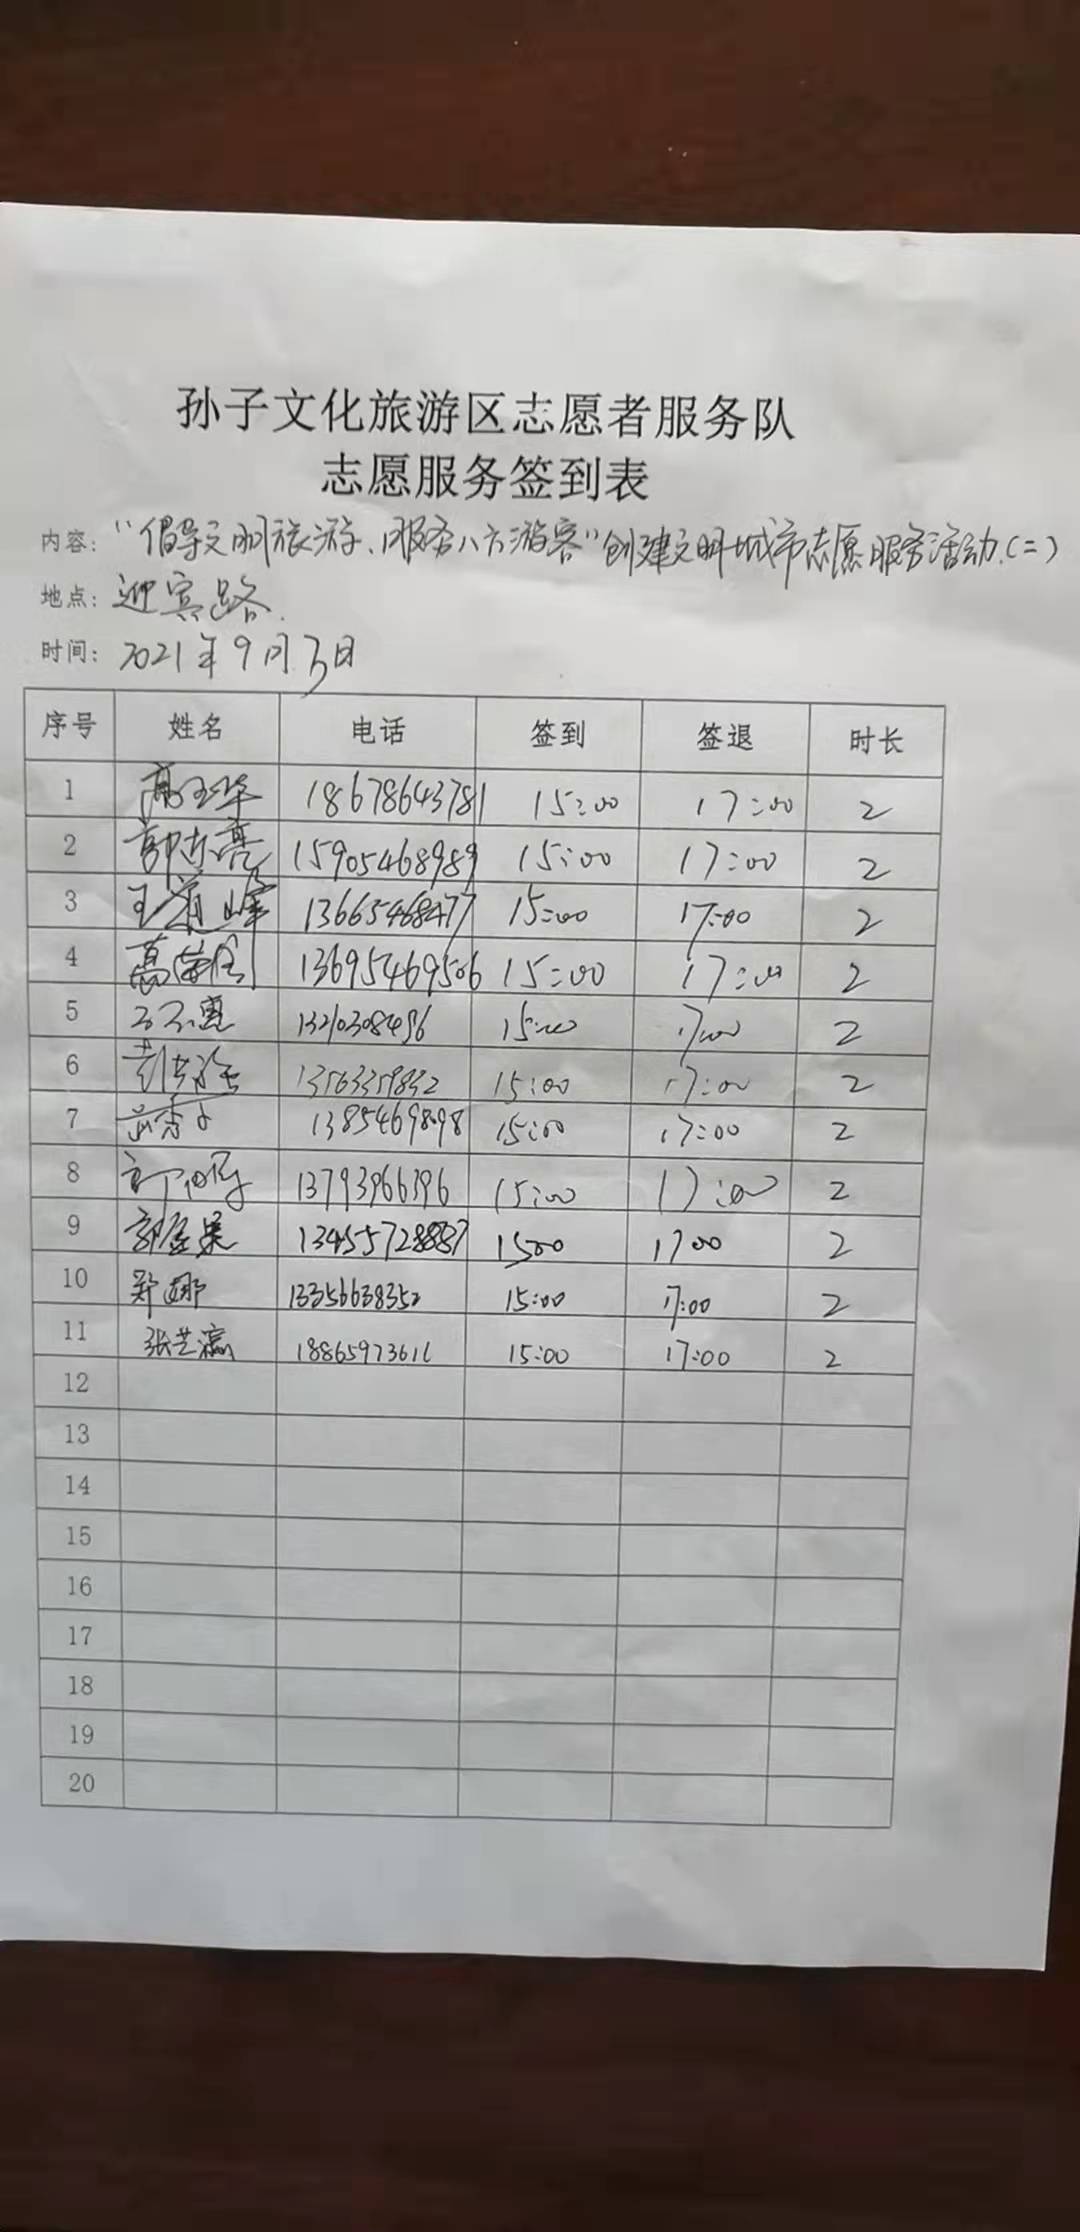 孙子文化旅游区志愿者服务队
志愿服务签到表
内容："倡导文明旅游、服务八方游客"创建文明城市志愿服务活动.(二)
地点：迎宾路.
时间：2021年9月3日
序号 姓名 电话 签到 签退 时长
1 高玉华 18678643781 15:00 17:00 2
2 15905468989 15:00 17:00 2
3 13665468477 15:00 17:00 2
4 13695469506 15:00 17:00 2
5 15:00 17:00 2
6 15:00 17:00 2
7 15:00 17:00 2
8 13793966396 15:00 17:00 2
9 15:00 17:00 2
10 郑娜 13356638352 15:00 17:00 2
11 张艺瀛 18865973616 15:00 17:00 2
12
13
14
15
16
17
18
19
20